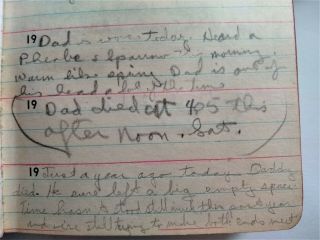 19 Dad is worse today. Heard a
Phoebe & Sparrow this morning.
Warm like spring Dad is out of
his head a lot of the time
19 Dad died at 405 this
after noon. Sat.
19 Just a year ago today Daddy
died. He sure left a big empty space.
Time hasn't stood still this past year
and we're still trying to make both ends meet